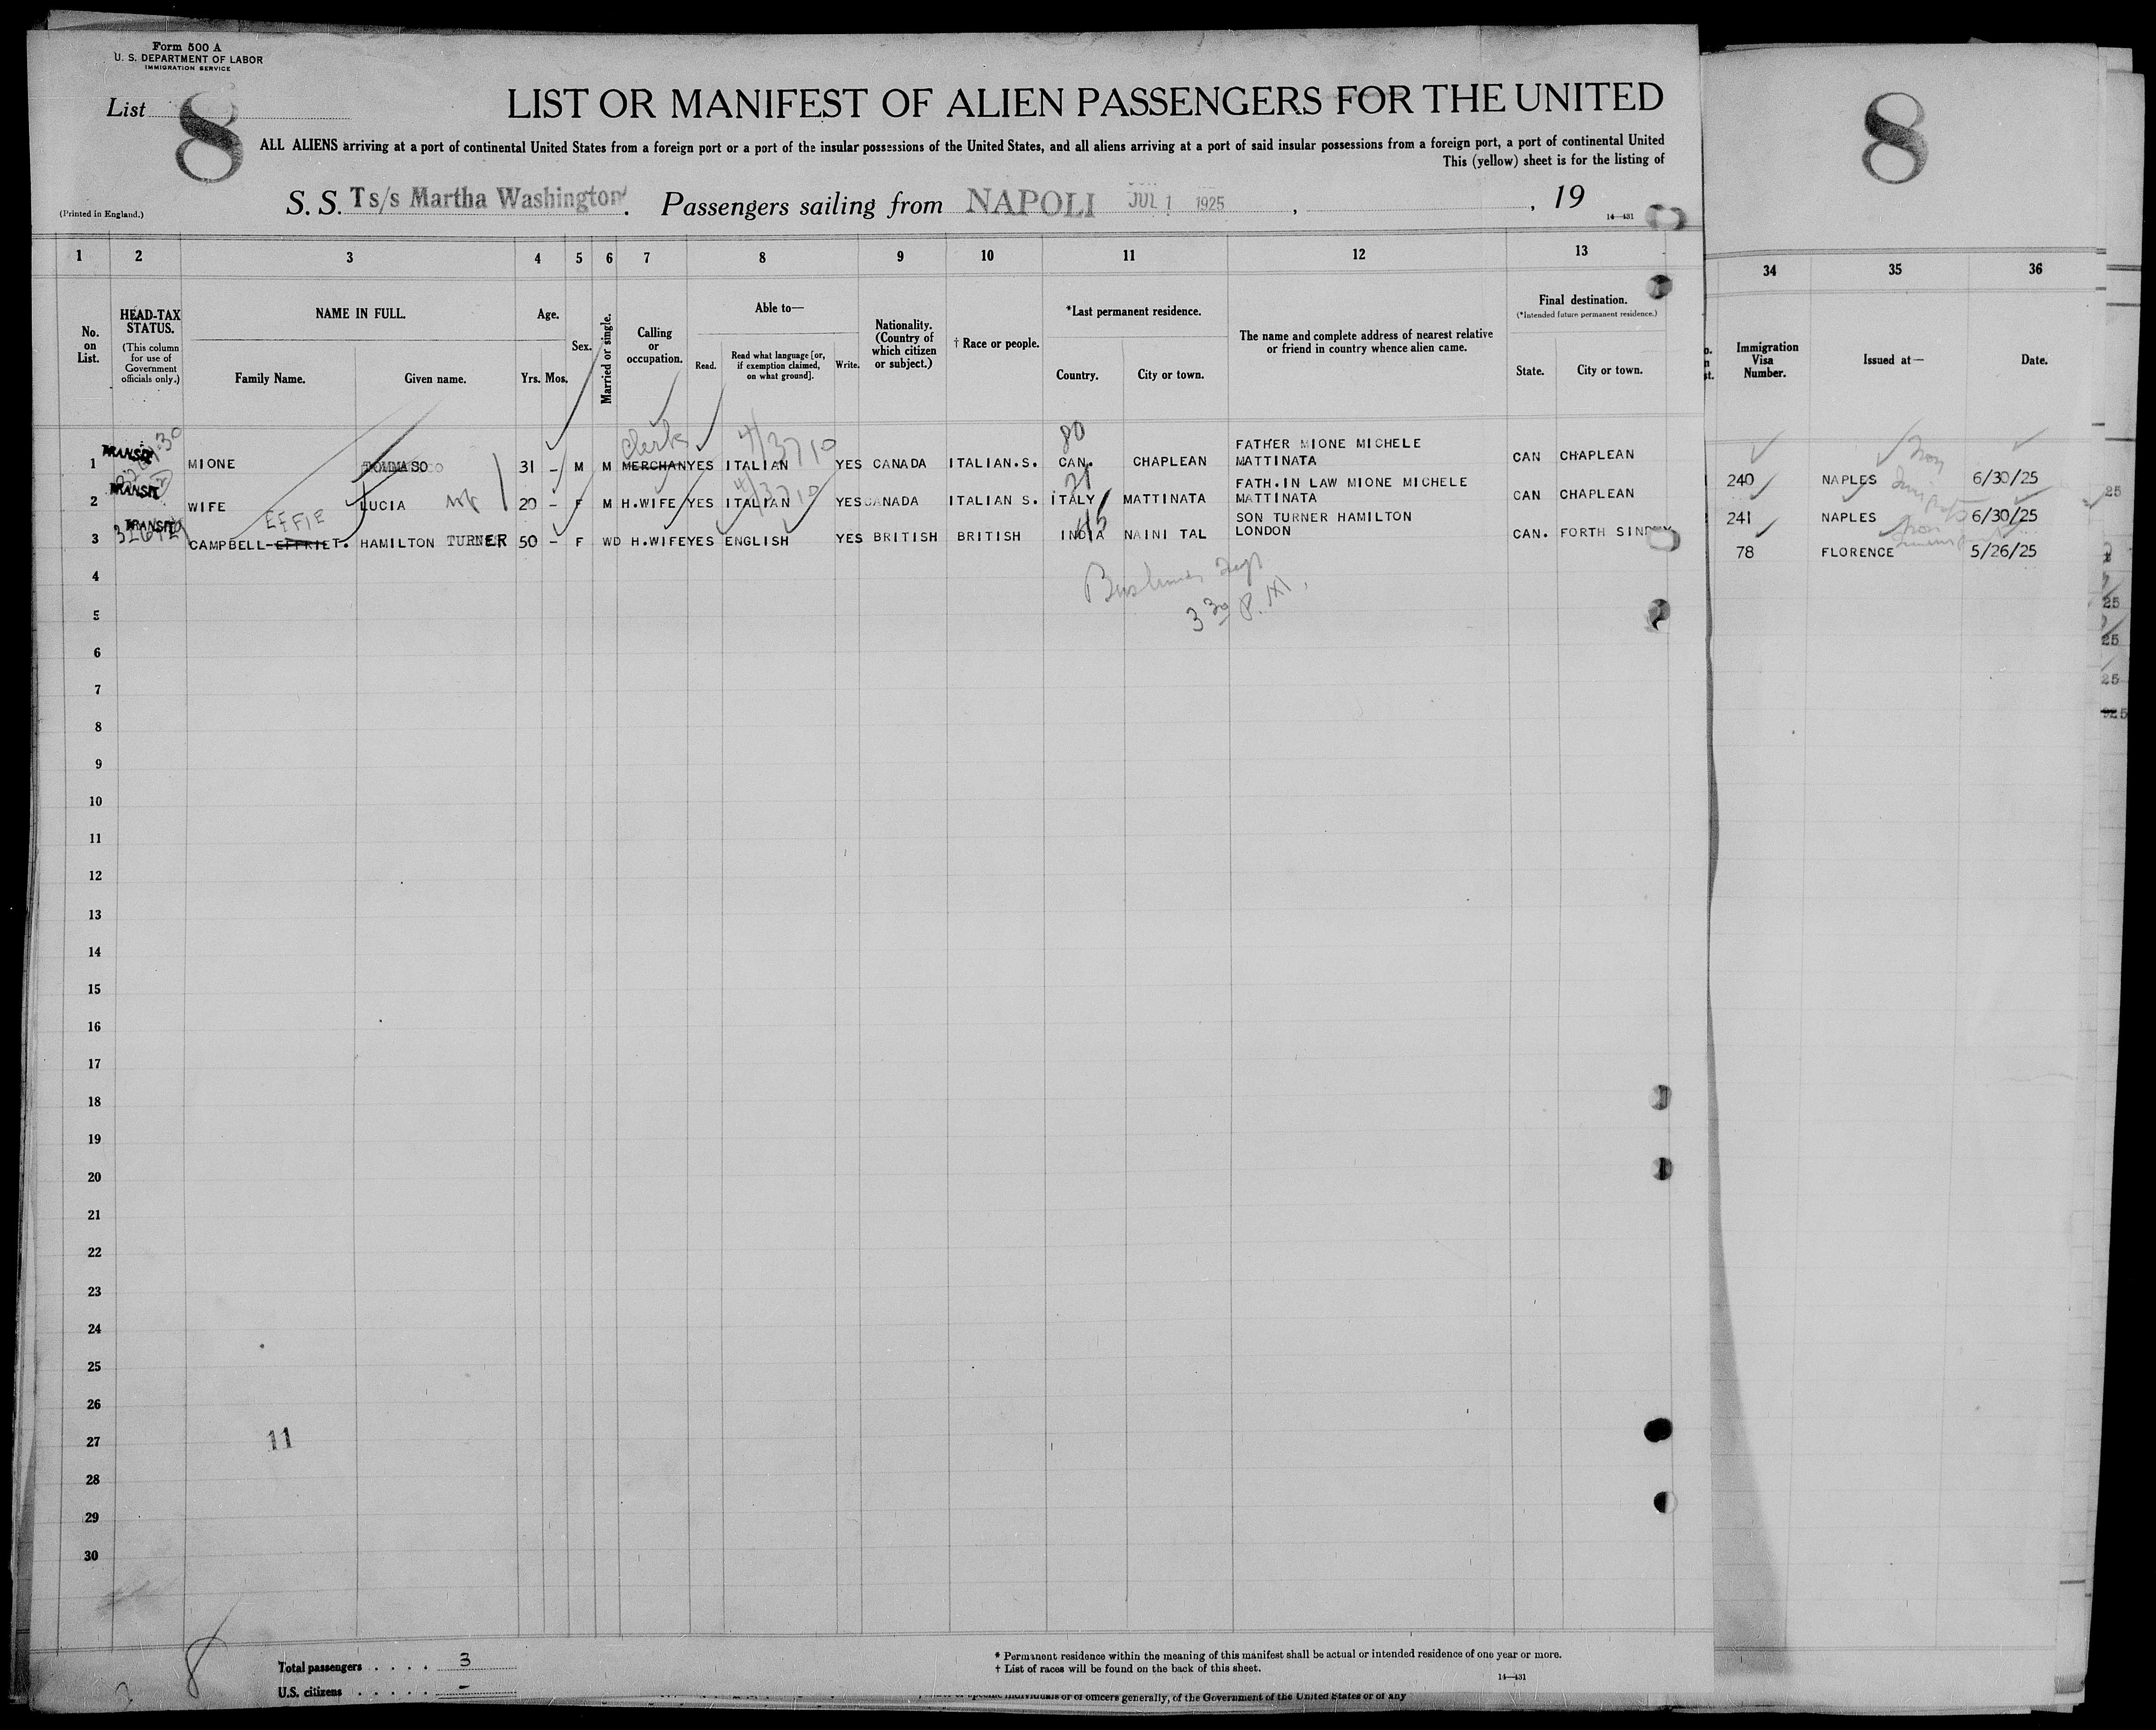 Form 500 A
U. S. DEPARTMENT OF LABOR
IMMIGRATION SERVICE
List 8
LIST OR MANIFEST OF ALIEN PASSENGERS FOR THE UNITED
ALL ALIENS arriving at a port of continental United States from a foreign port or a port of the insular possessions of the United States, and all aliens arriving at a port of said insular possessions from a foreign port, a port of continental United
This (yellow) sheet is for the listing of
(Printed in England.)
S. S. Ts/s Martha Washington. Passengers sailing from NAPOLI JUL 1 1925, , 19
14—431
8
1 2 3 4 5 6 7 8 9 10 11 12 13
34 35 36
No. on List.
HEAD-TAX STATUS.
(This column for use of Government officials only.)
NAME IN FULL.
Family Name. Given name.
Age.
Yrs. Mos.
Sex.
Married or single.
Calling or occupation.
Able to—
Read. Read what language [or, if exemption claimed, on what ground]. Write.
Nationality. (Country of which citizen or subject.)
† Race or people.
*Last permanent residence.
Country. City or town.
The name and complete address of nearest relative or friend in country whence alien came.
Final destination.
(*Intended future permanent residence.)
State. City or town.
Immigration Visa Number.
Issued at—
Date.
clerk 4/3710 80
1 TRANSIT MIONE TOMMASO 31 – M M MERCHAN YES ITALIAN YES CANADA ITALIAN.S. CAN. CHAPLEAN FATHER MIONE MICHELE MATTINATA CAN CHAPLEAN
240 NAPLES 6/30/25
4/3710 21
2 TRANSIT WIFE LUCIA 20 – F M H.WIFE YES ITALIAN YES CANADA ITALIAN S. ITALY MATTINATA FATH.IN LAW MIONE MICHELE MATTINATA CAN CHAPLEAN
241 NAPLES 6/30/25
EFFIE
3 TRANSIT CAMPBELL-EFFRIET. HAMILTON TURNER 50 – F WD H.WIFE YES ENGLISH YES BRITISH BRITISH INDIA NAINI TAL SON TURNER HAMILTON LONDON CAN. FORTH SIN
78 FLORENCE 5/26/25
4
5
3 30 P.M.
6
7
8
9
10
11
12
13
14
15
16
17
18
19
20
21
22
23
24
25
26
27
11
28
29
30
8
Total passengers . . . . 3
U.S. citizens . . . . . –
* Permanent residence within the meaning of this manifest shall be actual or intended residence of one year or more.
† List of races will be found on the back of this sheet.
14—431
individuals or of officers generally, of the Government of the United States or of any